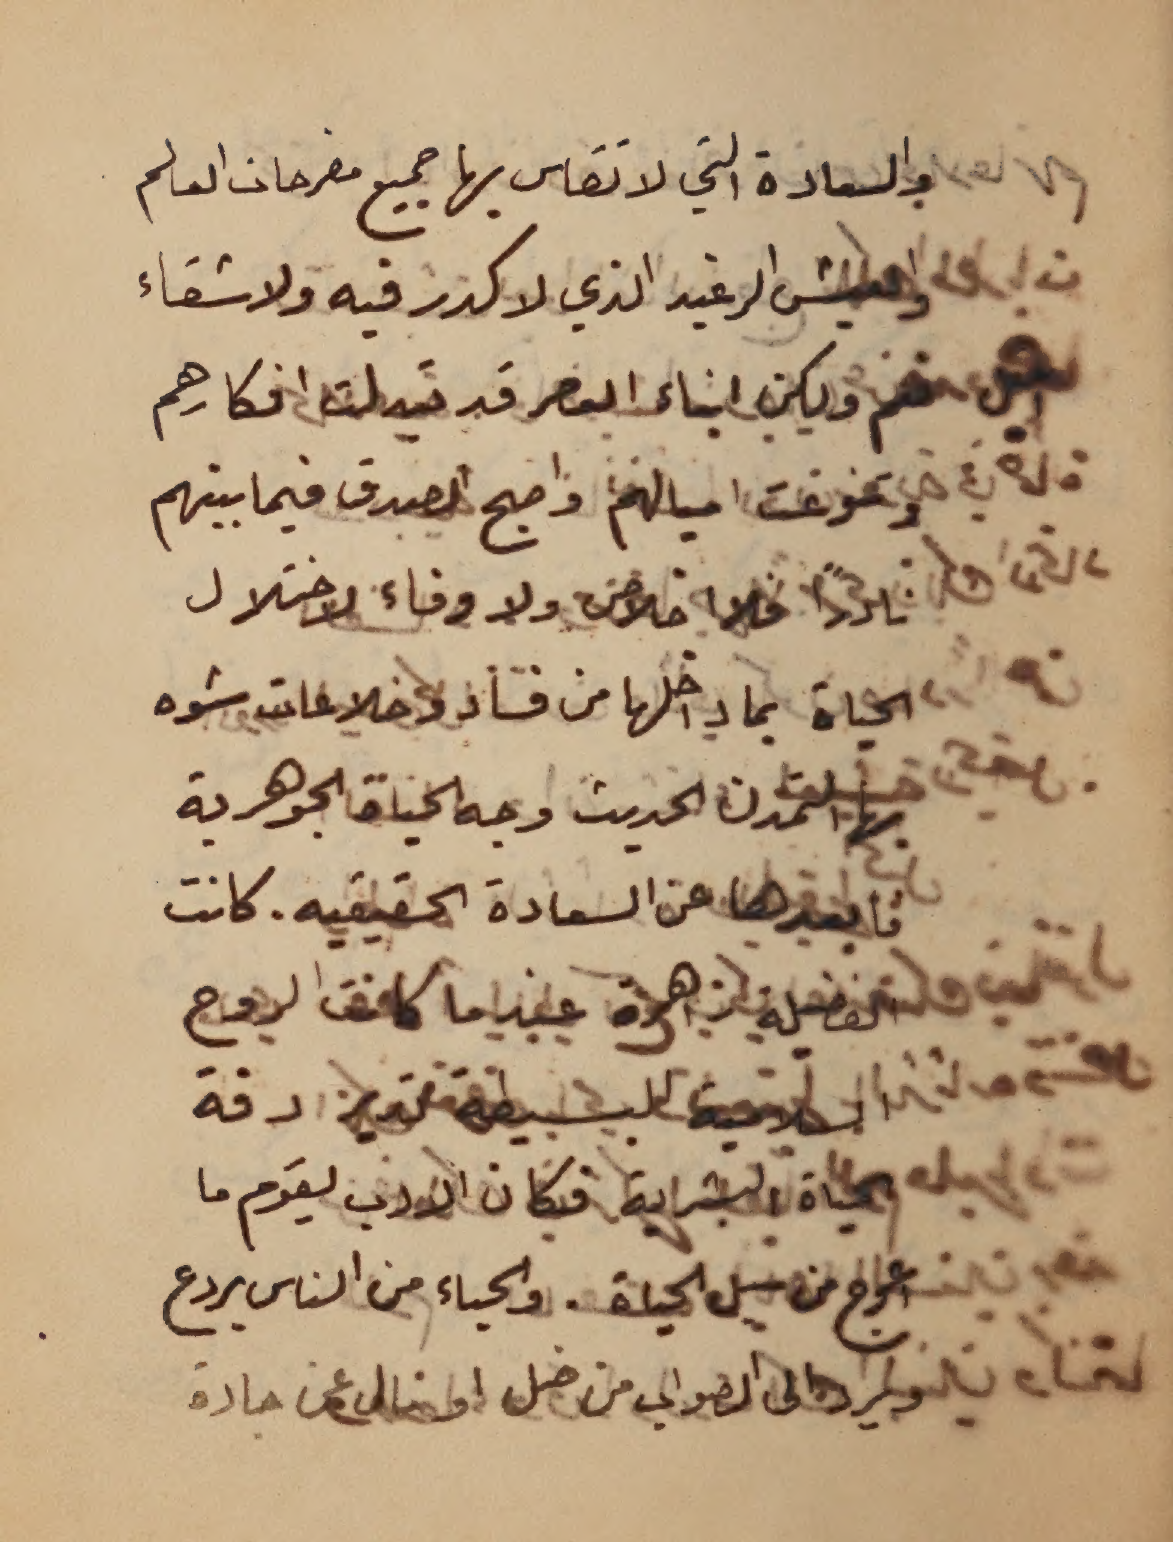 والسعادة التي لا تقاس بها جميع مفرحات العالم
والعيش الرغيد الذي لا كدر فيه ولا شقاء
نعم ولكن ابناء العصر قد تبدلت افكارهم
وتنوعت اميالهم واصبح الصدق فيما بينهم
نادرًا فلا اخلاص ولا وفاء لاختلال
الحياة بما داخلها من فساد وخلاعات شوه
بها التمدن الحديث وجه الحياة الجوهرية
فأبعدها عن السعادة الحقيقيه. كانت
الفضيلة زاهرة عندما كانت الروح
السلامية البسيطة تدير دفة
الحياة البشرية فكان الادب ليقوم ما
اعوج من سبل الحياة. والحياء من الناس يردع
ويرد الى الصواب من ضل او مال عن جادة